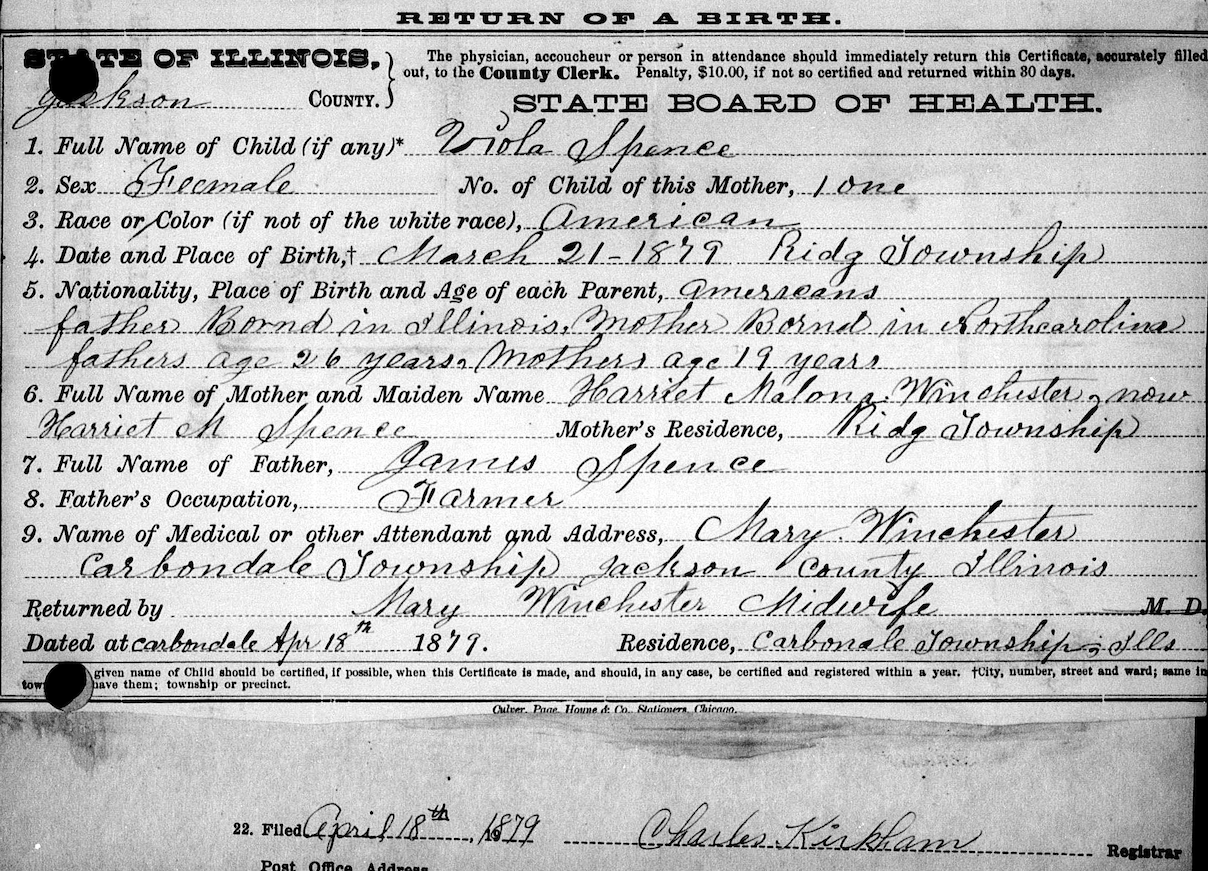 RETURN OF A BIRTH.
STATE OF ILLINOIS,
The physician, accoucheur or person in attendance should immediately return this Certificate, accurately filled
out, to the County Clerk. Penalty, $10.00, if not so certified and returned within 30 days.
Jackson COUNTY.
STATE BOARD OF HEALTH.
1. Full Name of Child (if any)* Viola Spence
2. Sex Fecmale No. of Child of this Mother, 1 one
3. Race or Color (if not of the white race), American
4. Date and Place of Birth,† March 21-1879 Ridg Township
5. Nationality, Place of Birth and Age of each Parent, Americans
father Bornd in Illinois, Mother Bornd in Northcarolina
fathers age 26 years, Mothers age 19 years
6. Full Name of Mother and Maiden Name Harriet Malona Winchester, now
Harriet M Spence Mother's Residence, Ridg Township
7. Full Name of Father, James Spence
8. Father's Occupation, Farmer
9. Name of Medical or other Attendant and Address, Mary Winchester
Carbondale Township Jackson County Illinois
Returned by Mary Winchester Midwife M. D.
Dated at Carbondale Apr 18th 1879. Residence, Carbonale Township, Ills
given name of Child should be certified, if possible, when this Certificate is made, and should, in any case, be certified and registered within a year. †City, number, street and ward; same in
have them; township or precinct.
Culver, Page, Hoyne & Co., Stationers, Chicago.
22. Filed April 18th, 1879 Charles Kirkham Registrar
Post Office Address